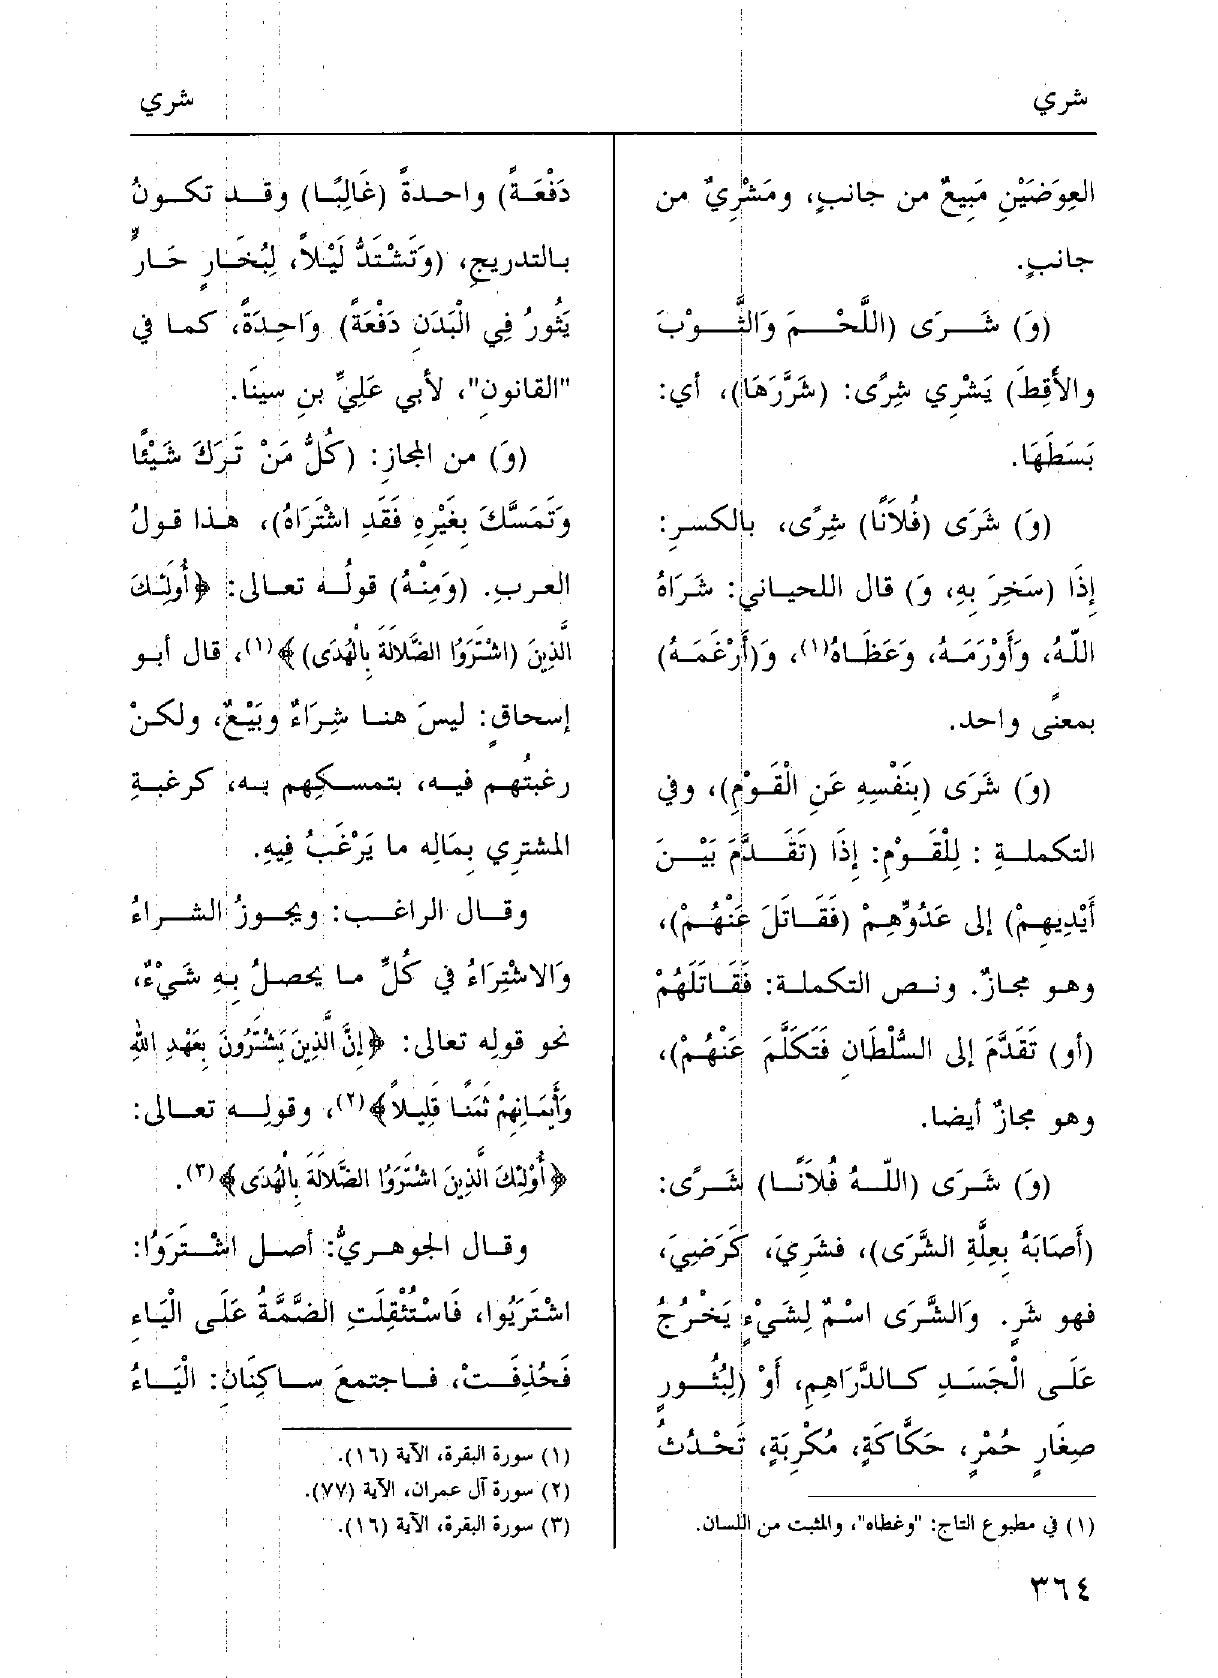 شري
شري
العِوَضَيْنِ مَبِيعٌ من جانبٍ، ومَشْرِيٌ من
جانبٍ.
(وَ) شَرَى (اللَّحْمَ وَالثَّوْبَ
والأَقِطَ) يَشْرِي شِرًى: (شَرَّرَهَا)، أي:
بَسَطَهَا.
(وَ) شَرَى (فُلاَنًا) شِرًى، بالكسرِ:
إِذَا (سَخِرَ بِهِ، وَ) قال اللحياني: شَرَاهُ
اللّهُ، وَأَوْرَمَهُ، وَعَظَاهُ(١)، وَ(أَرْغَمَهُ)
بمعنًى واحد.
(وَ) شَرَى (بِنَفْسِهِ عَنِ الْقَوْمِ)، وفي
التكملةِ : لِلْقَوْمِ: إِذَا (تَقَدَّمَ بَيْنَ
أَيْدِيهِمْ) إلى عَدُوِّهِمْ (فَقَاتَلَ عَنْهُمْ)،
وهو مجازٌ. ونص التكملة: فَقَاتَلَهُمْ
(أو) تَقَدَّمَ إلى السُّلْطَانِ فَتَكَلَّمَ عَنْهُمْ)،
وهو مجازٌ أيضا.
(وَ) شَرَى (اللّهُ فُلاَنًا) شَرًى:
(أَصَابَهُ بِعِلَّةِ الشَّرَى)، فشَرِيَ، كَرَضِيَ،
فهو شَرٍ. وَالشَّرَى اسْمٌ لِشَيْءٍ يَخْرُجُ
عَلَى الْجَسَدِ كالدَّرَاهِمِ، أَوْ (لِبُثُورٍ
صِغَارٍ حُمْرٍ، حَكَّاكَةٍ، مُكْرِبَةٍ، تَحْدُثُ
(١) في مطبوع التاج: "وغطاه"، والمثبت من اللسان.
٣٦٤
دَفْعَةً) واحدةً (غَالِبًا) وقد تكونُ
بالتدريجِ، (وَتَشْتَدُّ لَيْلاً، لِبُخَارٍ حَارٍّ
يَثُورُ فِي الْبَدَنِ دَفْعَةً) وَاحِدَةً، كما في
"القانون"، لأبي عَلِيِّ بنِ سينَا.
(وَ) من المجازِ: (كُلُّ مَنْ تَرَكَ شَيْئًا
وَتَمَسَّكَ بِغَيْرِهِ فَقَدِ اشْتَرَاهُ)، هذا قولُ
العربِ. (وَمِنْهُ) قولُه تعالى: ﴿أُولَئِكَ
الَّذِينَ (اشْتَرَوُا الضَّلاَلَةَ بِالْهُدَى)﴾(١)، قال أبو
إسحاقٍ: ليسَ هنا شِرَاءٌ وبَيْعٌ، ولكنْ
رغبتُهم فيه، بتمسكِهم به، كرغبةِ
المشتري بِمَالِه ما يَرْغَبُ فِيهِ.
وقال الراغب: ويجوزُ الشراءُ
وَالاشْتِرَاءُ في كُلِّ ما يحصلُ بِهِ شَيْءٌ،
نحو قولِه تعالى: ﴿إِنَّ الَّذِينَ يَشْتَرُونَ بِعَهْدِ اللهِ
وَأَيْمَانِهِمْ ثَمَنًا قَلِيلاً﴾(٢)، وقولِه تعالى:
﴿أُوْلَئِكَ الَّذِينَ اشْتَرَوُا الضَّلاَلَةَ بِالْهُدَى﴾(٣).
وقال الجوهريُّ: أصل اشْتَرَوُا:
اشْتَرَيُوا، فَاسْتُثْقِلَتِ الضَّمَّةُ عَلَى الْيَاءِ
فَحُذِفَتْ، فاجتمعَ ساكِنَانِ: الْيَاءُ
(١) سورة البقرة، الآية (١٦).
(٢) سورة آل عمران، الآية (٧٧).
(٣) سورة البقرة، الآية (١٦).